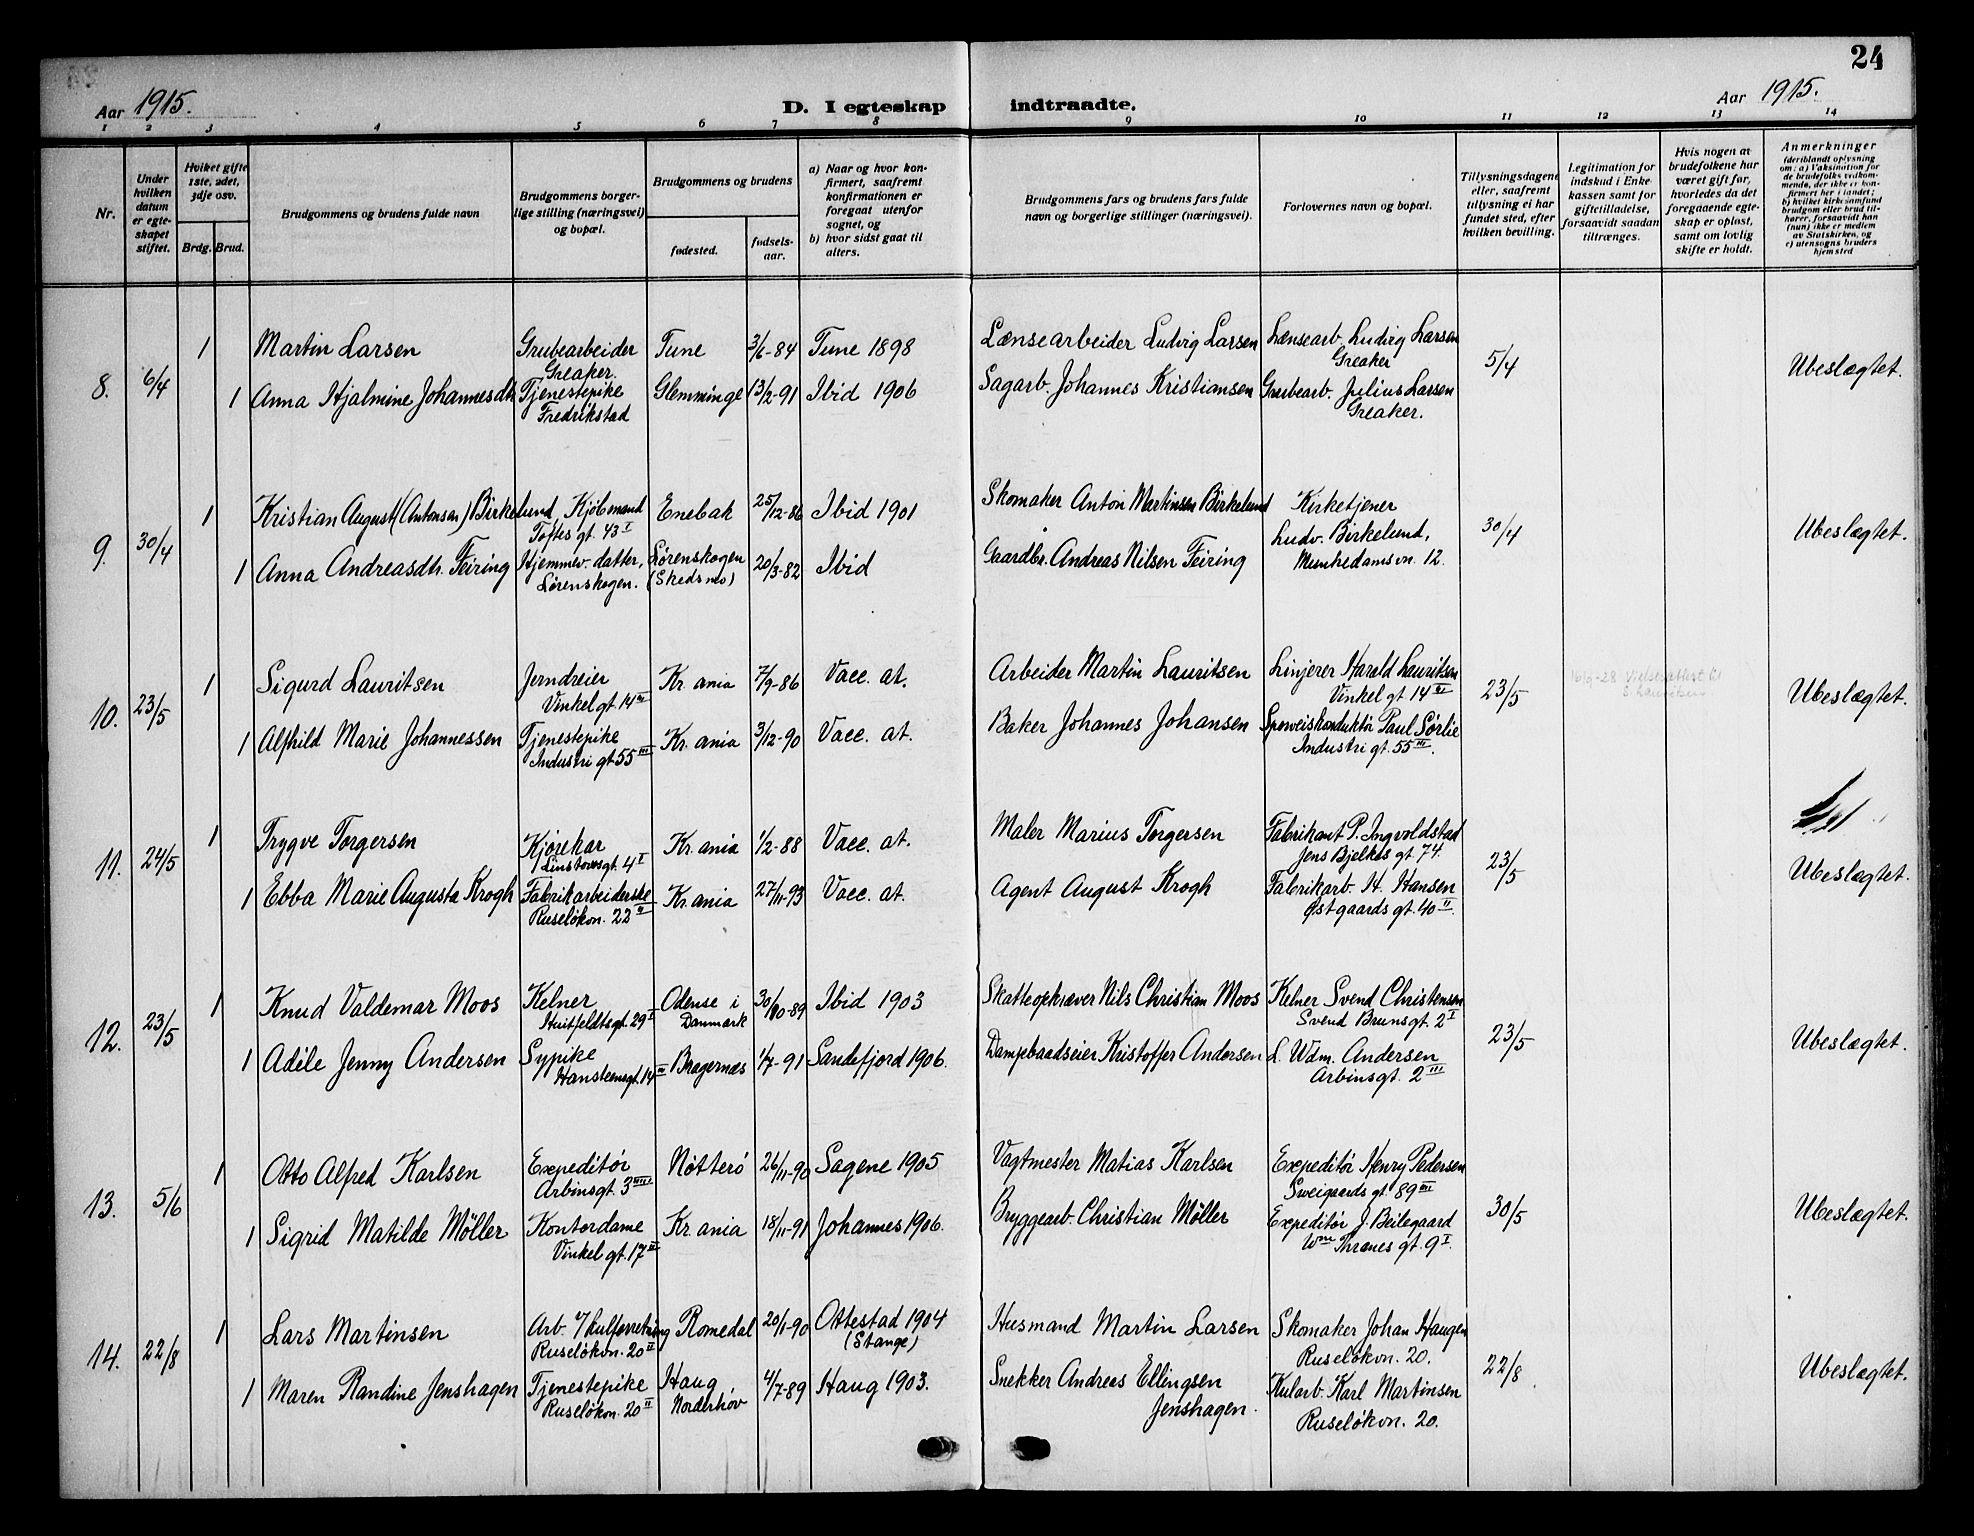 24
Aar 1915.
D. I egteskap indtraadte.
Aar 1915.
1 2 3 4 5 6 7 8 9 10 11 12 13 14
Nr.
Under hvilken datum er egteskapet stiftet.
Hvilket gifte 1ste, 2det, 3dje osv.
Brdg. Brud.
Brudgommens og brudens fulde navn
Brudgommens borgerlige stilling (næringsvei) og bopæl.
Brudgommens og brudens
fødested.
fødselsaar.
a) Naar og hvor konfirmert, saafremt konfirmationen er foregaat utenfor sognet, og
b) hvor sidst gaat til alters.
Brudgommens fars og brudens fars fulde navn og borgerlige stillinger (næringsvei).
Forlovernes navn og bopæl.
Tillysningsdagene eller, saafremt tillysning ei har fundet sted, efter hvilken bevilling.
Legitimation for indskud i Enkekassen samt for giftetilladelse, forsaavidt saadan tiltrænges.
Hvis nogen av brudefolkene har været gift før, hvorledes da det foregaaende egteskap er opløst, samt om lovlig skifte er holdt.
Anmerkninger (deriblandt oplysning om: a) Vaksination for de brudefolks vedkommende, der ikke er konfirmert her i landet; b) hvilket kirkesamfund brudgom eller brud tilhører, forsaavidt han (hun) ikke er medlem av Statskirken, og c) utensogns bruders hjemsted
8. 6/4
1 Martin Larsen Grubearbeider Greaker. Tune 3/6-84 Tune 1898 Lænsearbeider Ludvig Larsen Lænsearb. Ludvig Larsen Greaker 5/4 Ubeslægtet.
1 Anna Hjalmine Johannesdtr. Tjenestepike Fredrikstad Glemminge 13/2-91 Ibid 1906 Sagarb. Johannes Kristiansen Grubearb. Julius Larsen Greaker.
9. 30/4
1 Kristian August (Antonsen) Birkelund, Kjøbmand Toftes gt. 43 I Enebak 25/12-86 Ibid 1901 Skomaker Anton Martinsen Birkelund Kirketjener Ludv. Birkelund, Munkedamsvn. 12. 30/4 Ubeslægtet.
1 Anna Andreasdtr. Feiring Hjemmev. datter, Lørenskogen. Lørenskogen (Skedsmo) 20/3-82 Ibid Gaardbr. Andreas Nilsen Feiring
10. 23/5
1 Sigurd Lauritsen Jerndreier Vinkel gt. 14 III Kr. ania 7/9-86 Vacc. at. Arbeider Martin Lauritsen Linjerer Harald Lauritsen Vinkel gt 14 III 23/5 16/9-28 Vielsesattest til S. Lauritsen Ubeslægtet.
1 Alfhild Marie Johannessen Tjenestepike Industri gt. 55 III Kr. ania 3/12-90 Vacc. at. Baker Johannes Johansen Sporveiskonduktør Paul Sørlie Industri gt. 55 III.
11. 24/5
1 Trygve Torgersen Kjørekar Linstowsgt. 4 I Kr. ania 1/2-88 Vacc. at. Maler Marius Torgersen Fabrikant P. Ingvoldstad Jens Bjelkes gt. 74. 23/5 Ubeslægtet.
1 Ebba Marie Augusta Krogh Fabrikarbeiderske Ruseløkvn. 22 II Kr. ania 27/11-93 Vacc. at. Agent August Krogh Fabrikarb. H. Hansen Østgaards gt. 40 II.
12. 23/5
1 Knud Valdemar Moos Kelner Huitfeldtsgt. 29 I Odense i Danmark 30/10-89 Ibid 1903 Skatteopkræver Nils Christian Moos Kelner Svend Christensen Svend Brunsgt. 2 I 23/5 Ubeslægtet.
1 Adéle Jenny Andersen Sypike Hansteensgt. 14 III Bragernæs 1/7-91 Sandefjord 1906. Dampbaadseier Kristoffer Andersen L. Wdm. Andersen Arbinsgt. 2 III
13. 5/6
1 Otto Alfred Karlsen Expeditør Arbinsgt. 3 IIII Nøtterø 26/11-90 Sagene 1905 Vagtmester Matias Karlsen Expeditør Henry Pedersen Sweigaards gt. 89 III 30/5 Ubeslægtet.
1 Sigrid Matilde Møller Kontordame Vinkel gt. 17 II Kr. ania 18/11-91 Johannes 1906. Bryggearb. Christian Møller Expeditør J. Beilegaard Wm Thranes gt. 9 I.
14. 22/8
1 Lars Martinsen Arb. v/ kulforretning Ruseløkvn. 20 II Romedal 20/1-90 Ottestad 1904 (Stange) Husmand Martin Larsen Skomaker Johan Haugen Ruseløkvn. 20. 22/8 Ubeslægtet.
1 Maren Randine Jenshagen Tjenestepike Ruseløkvn. 20 II Haug Norderhov 4/7-89 Haug 1903. Snekker Andreas Ellingsen Jenshagen. Kularb. Karl Martinsen Ruseløkvn. 20.